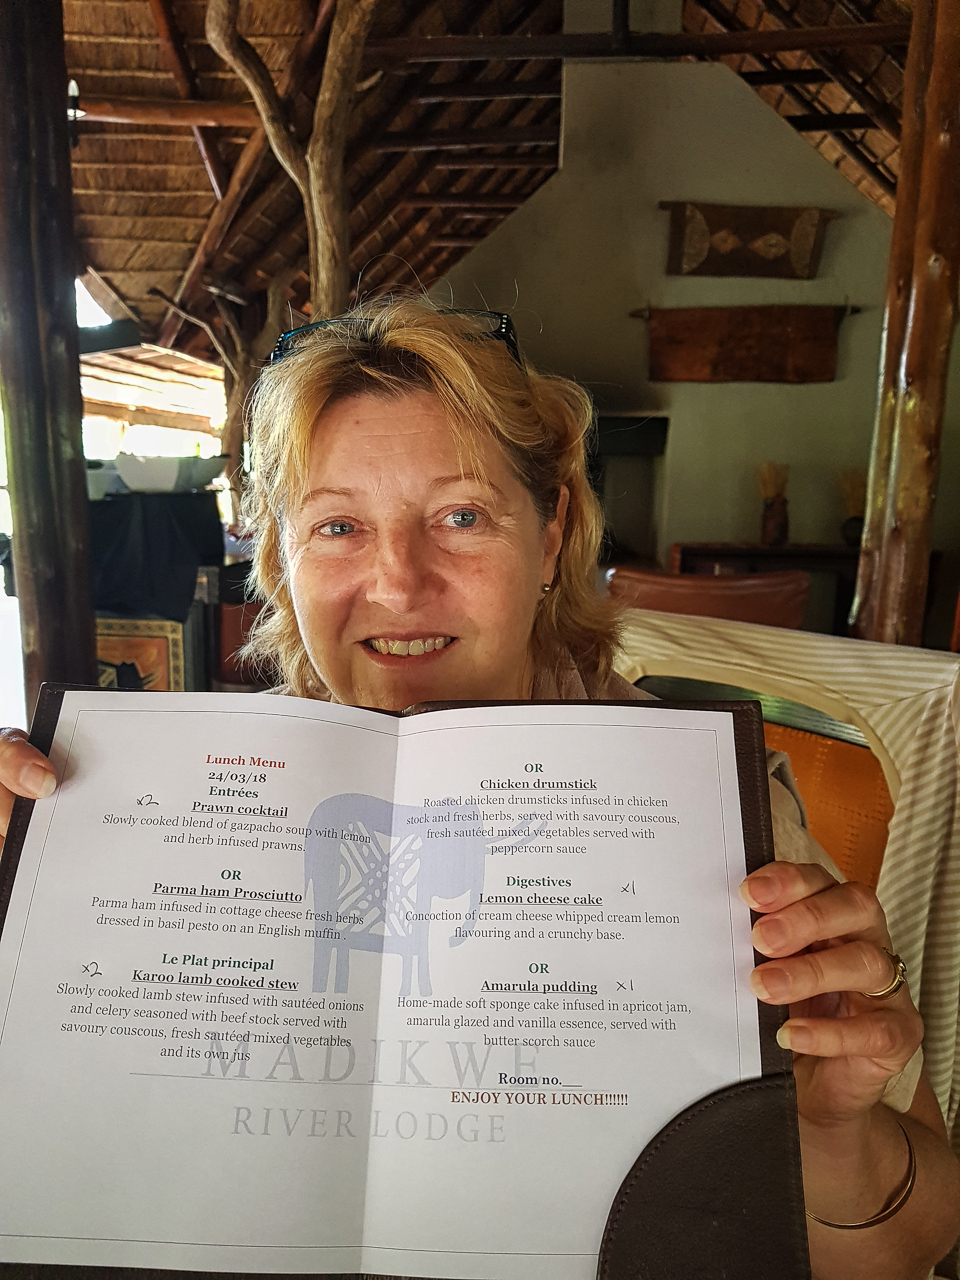 Lunch Menu
24/03/18
Entrées
x2
Prawn cocktail
Slowly cooked blend of gazpacho soup with lemon
and herb infused prawns.
OR
Parma ham Prosciutto
Parma ham infused in cottage cheese fresh herbs
dressed in basil pesto on an English muffin .
Le Plat principal
x2
Karoo lamb cooked stew
Slowly cooked lamb stew infused with sautéed onions
and celery seasoned with beef stock served with
savoury couscous, fresh sautéed mixed vegetables
and its own jus
OR
Chicken drumstick
Roasted chicken drumsticks infused in chicken
stock and fresh herbs, served with savoury couscous,
fresh sautéed mixed vegetables served with
peppercorn sauce
Digestives
x1
Lemon cheese cake
Concoction of cream cheese whipped cream lemon
flavouring and a crunchy base.
OR
Amarula pudding x1
Home-made soft sponge cake infused in apricot jam,
amarula glazed and vanilla essence, served with
butter scorch sauce
Room no.__
ENJOY YOUR LUNCH!!!!!!
MADIKWE
RIVER LODGE